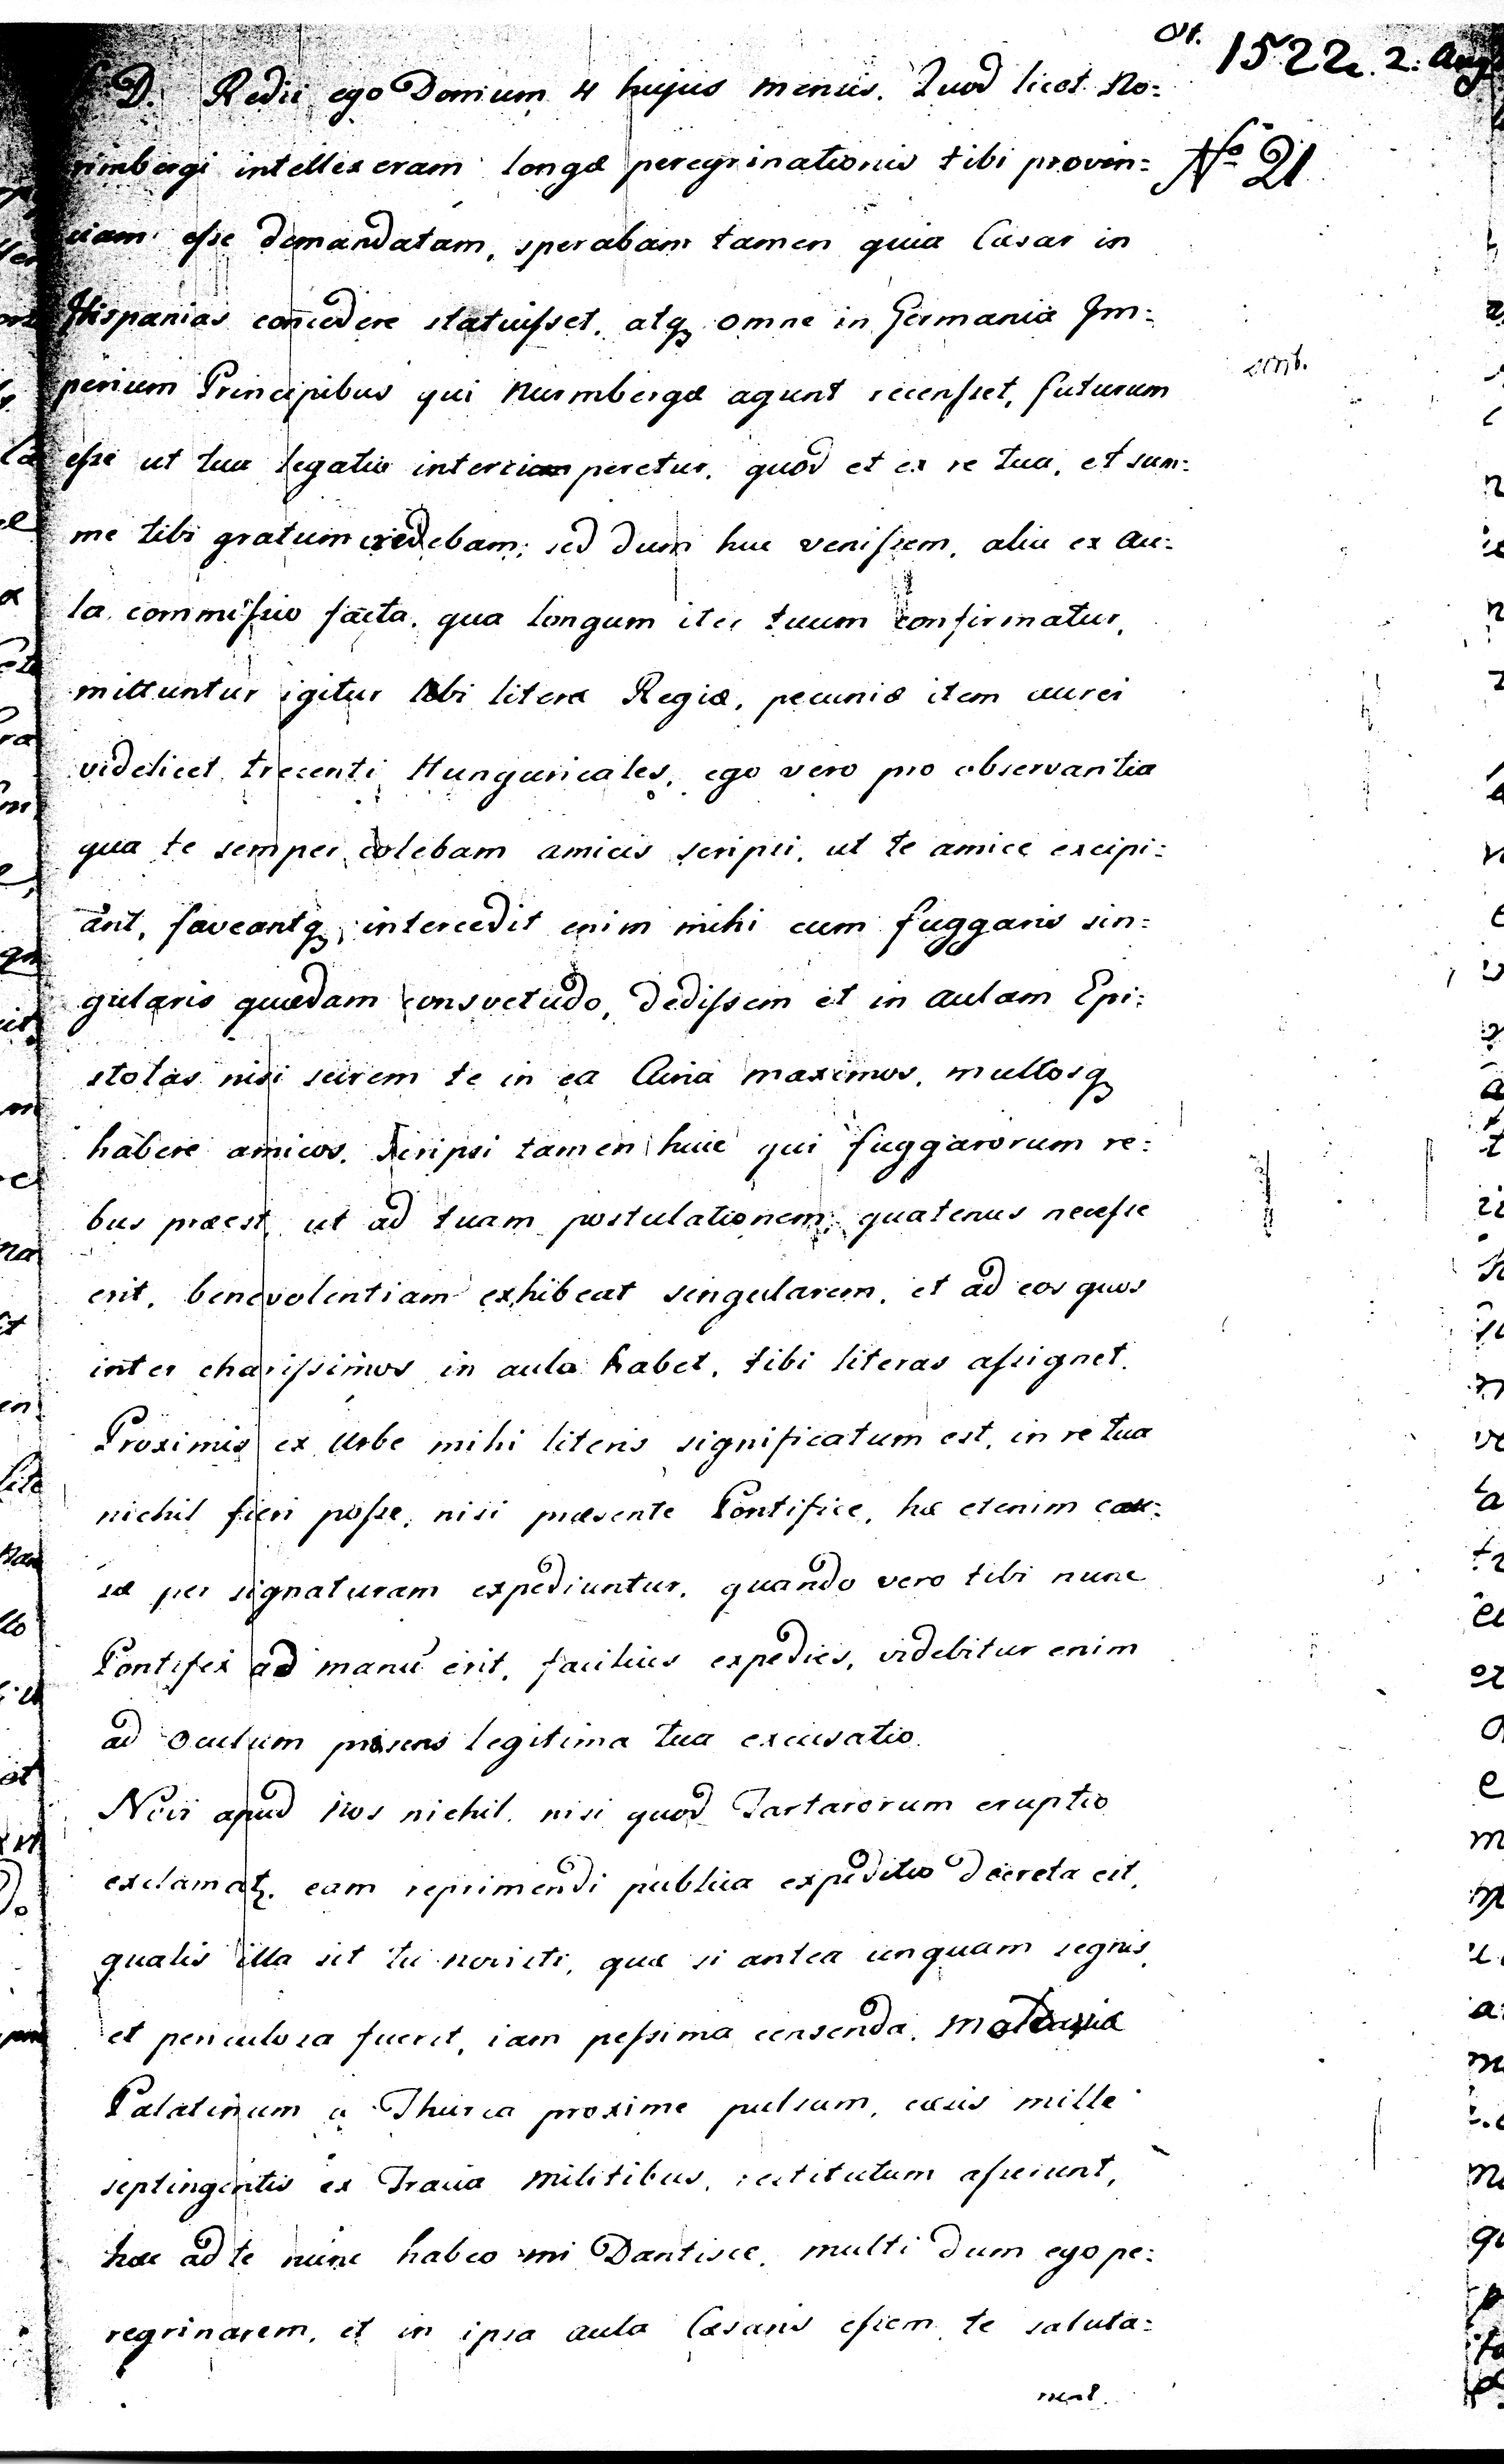 1522. 2. Aug
No 21
S. D. Redii ego Domum 4 hujus mensis. Quod licet No-
rimbergi intellexeram longæ peregrinationis tibi provin-
ciam esse demandatam, sperabam tamen quia Cæsar in
Hispanias concedere statuisset, atq omne in Germania Im-
perium Principibus qui Nurmbergæ agunt recensset, futurum
esse ut tua legatio interrumperetur, quod et ex re tua, et sum-
me tibi gratum credebam; sed dum huc venissem, alia ex Au-
la commissio facta, qua longum iter tuum confirmatur,
mittuntur igitur tibi literæ Regiæ, pecuniæ item aurei
videlicet trecenti Hungaricales, ego vero pro observantia
qua te semper colebam amicis scripsi, ut te amice excipi-
ant, faveantq, intercedit enim mihi cum fuggaris sin-
gularis quædam consvetudo, dedissem et in aulam Epi-
stolas nisi scirem te in ea Curia maximos, multosq
habere amicos. Scripsi tamen huic qui fuggarorum re-
bus præest, ut ad tuam postulationem, quatenus necesse
erit, benevolentiam exhibeat singularem, et ad eos quos
inter charissimos in aula habet, tibi literas assignet.
Proximis ex Urbe mihi literis significatum est, in re tua
nichil fieri posse, nisi præsente Pontifice, hæ etenim cau-
sæ per signaturam expediuntur, quando vero tibi nunc
Pontifex ad manu erit, facilius expedies, videbitur enim
ad oculum præsens legitima tua excusatio.
Novi apud Nos nichil, nisi quod Tartarorum eruptio
exclamatz. eam reprimendi publica expeditio decreta est,
qualis illa sit tu novisti, quæ si antea unquam segnis,
et periculosa fuerit, iam pessima censenda.
Palatinum a Thurca proxime pulsum, cæsis mille
septingentis ex militibus, restitutum asserunt,
hæc ad te nunc habeo mi Dantisce, multi dum ego pe-
regrinarem, et in ipsa aula Cæsaris essem te saluta-
runt.